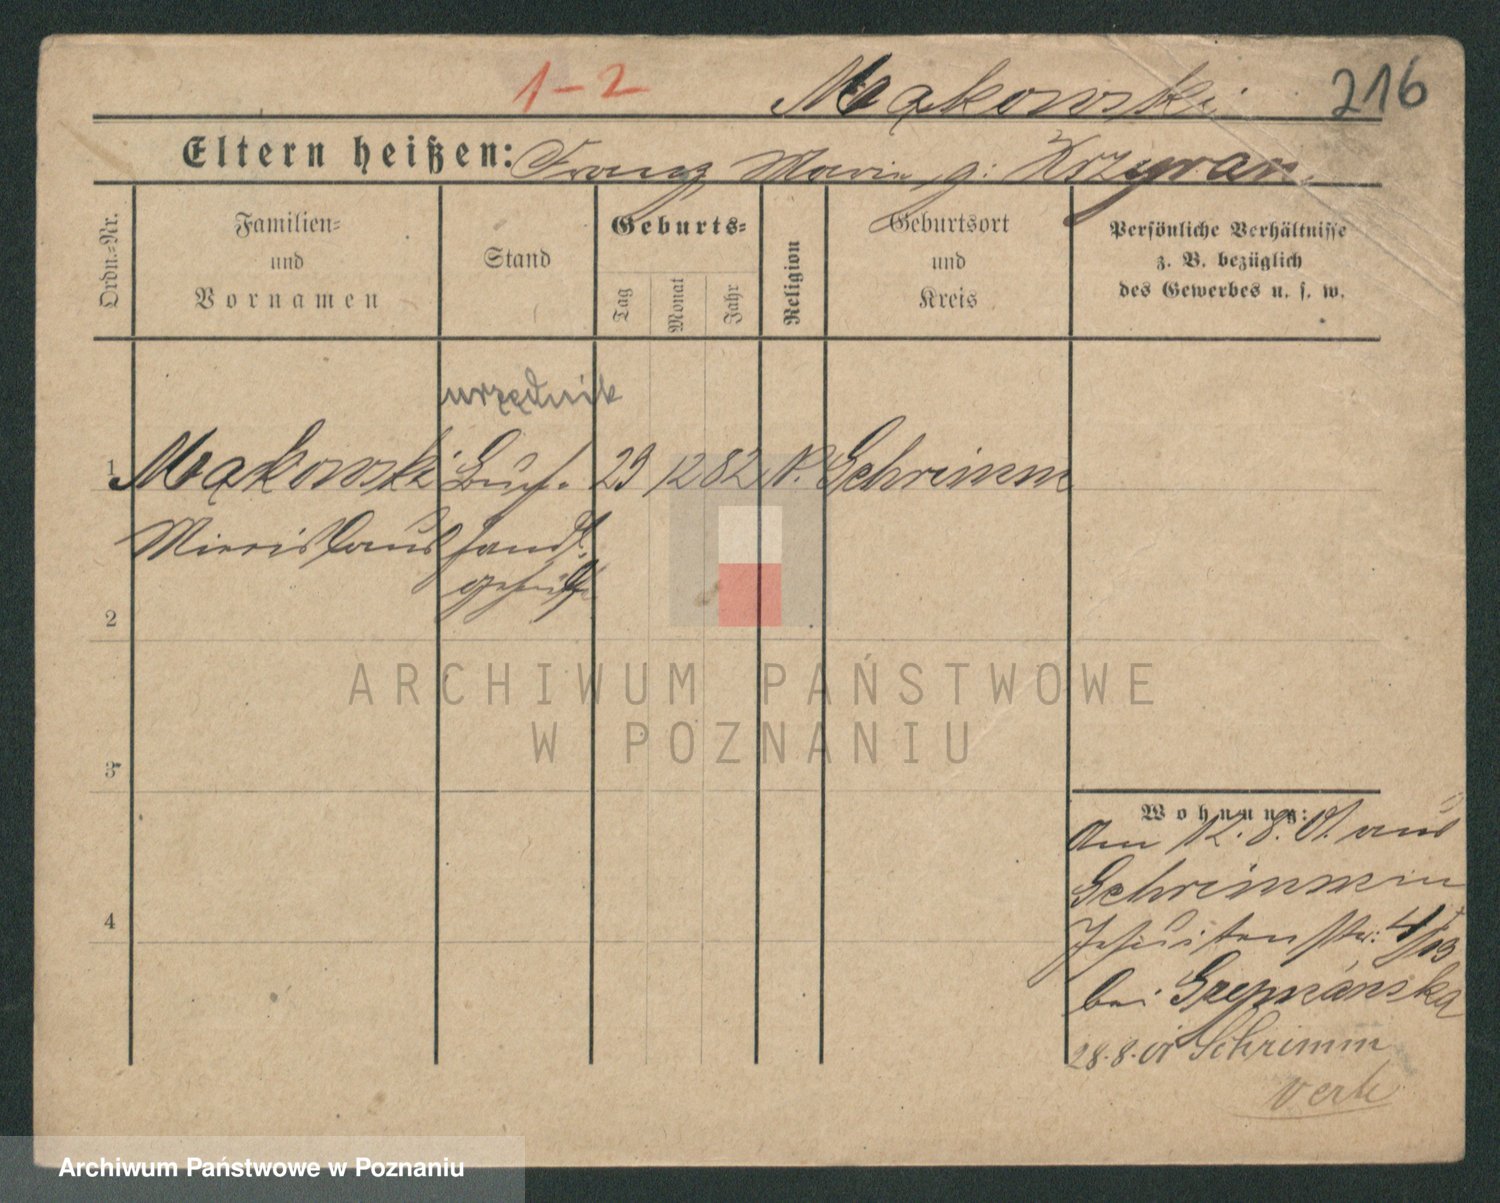 1-2 Mąkowski 216
Eltern heißen: Franz Marie g.
Ordn.-Nr.
Familien-
und
Vornamen
Stand
Geburts-
Tag
Monat
Jahr
Religion
Geburtsort
und
Kreis
Persönliche Verhältnisse
z. B. bezüglich
des Gewerbes u. s. w.
urzędnik
1 Mąkowski Buch- 29 12 82 K. Schrimm
handl.
gehilfe
2
3
4
ARCHIWUM PAŃSTWOWE
W POZNANIU
Wohnung:
Am 12.8.01. aus
Schrimm in
Jesuitenstr. 4/
bei
28.8.01 Schrimm
verte
Archiwum Państwowe w Poznaniu